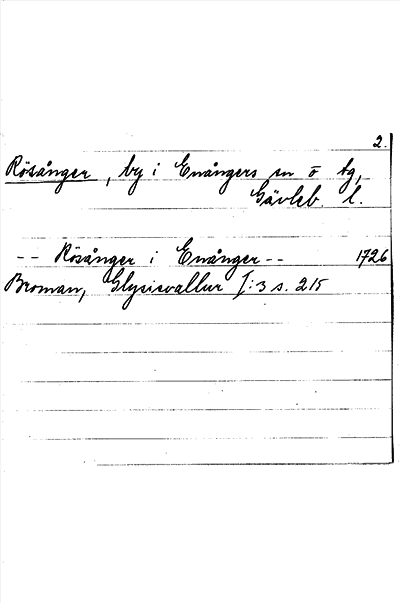 2.
Rösånger, by i Enångers sn o tg,
Gävleb. l.
-- Rösånger i Enånger -- 1726
Broman, Glysisvallur I:3 s. 215